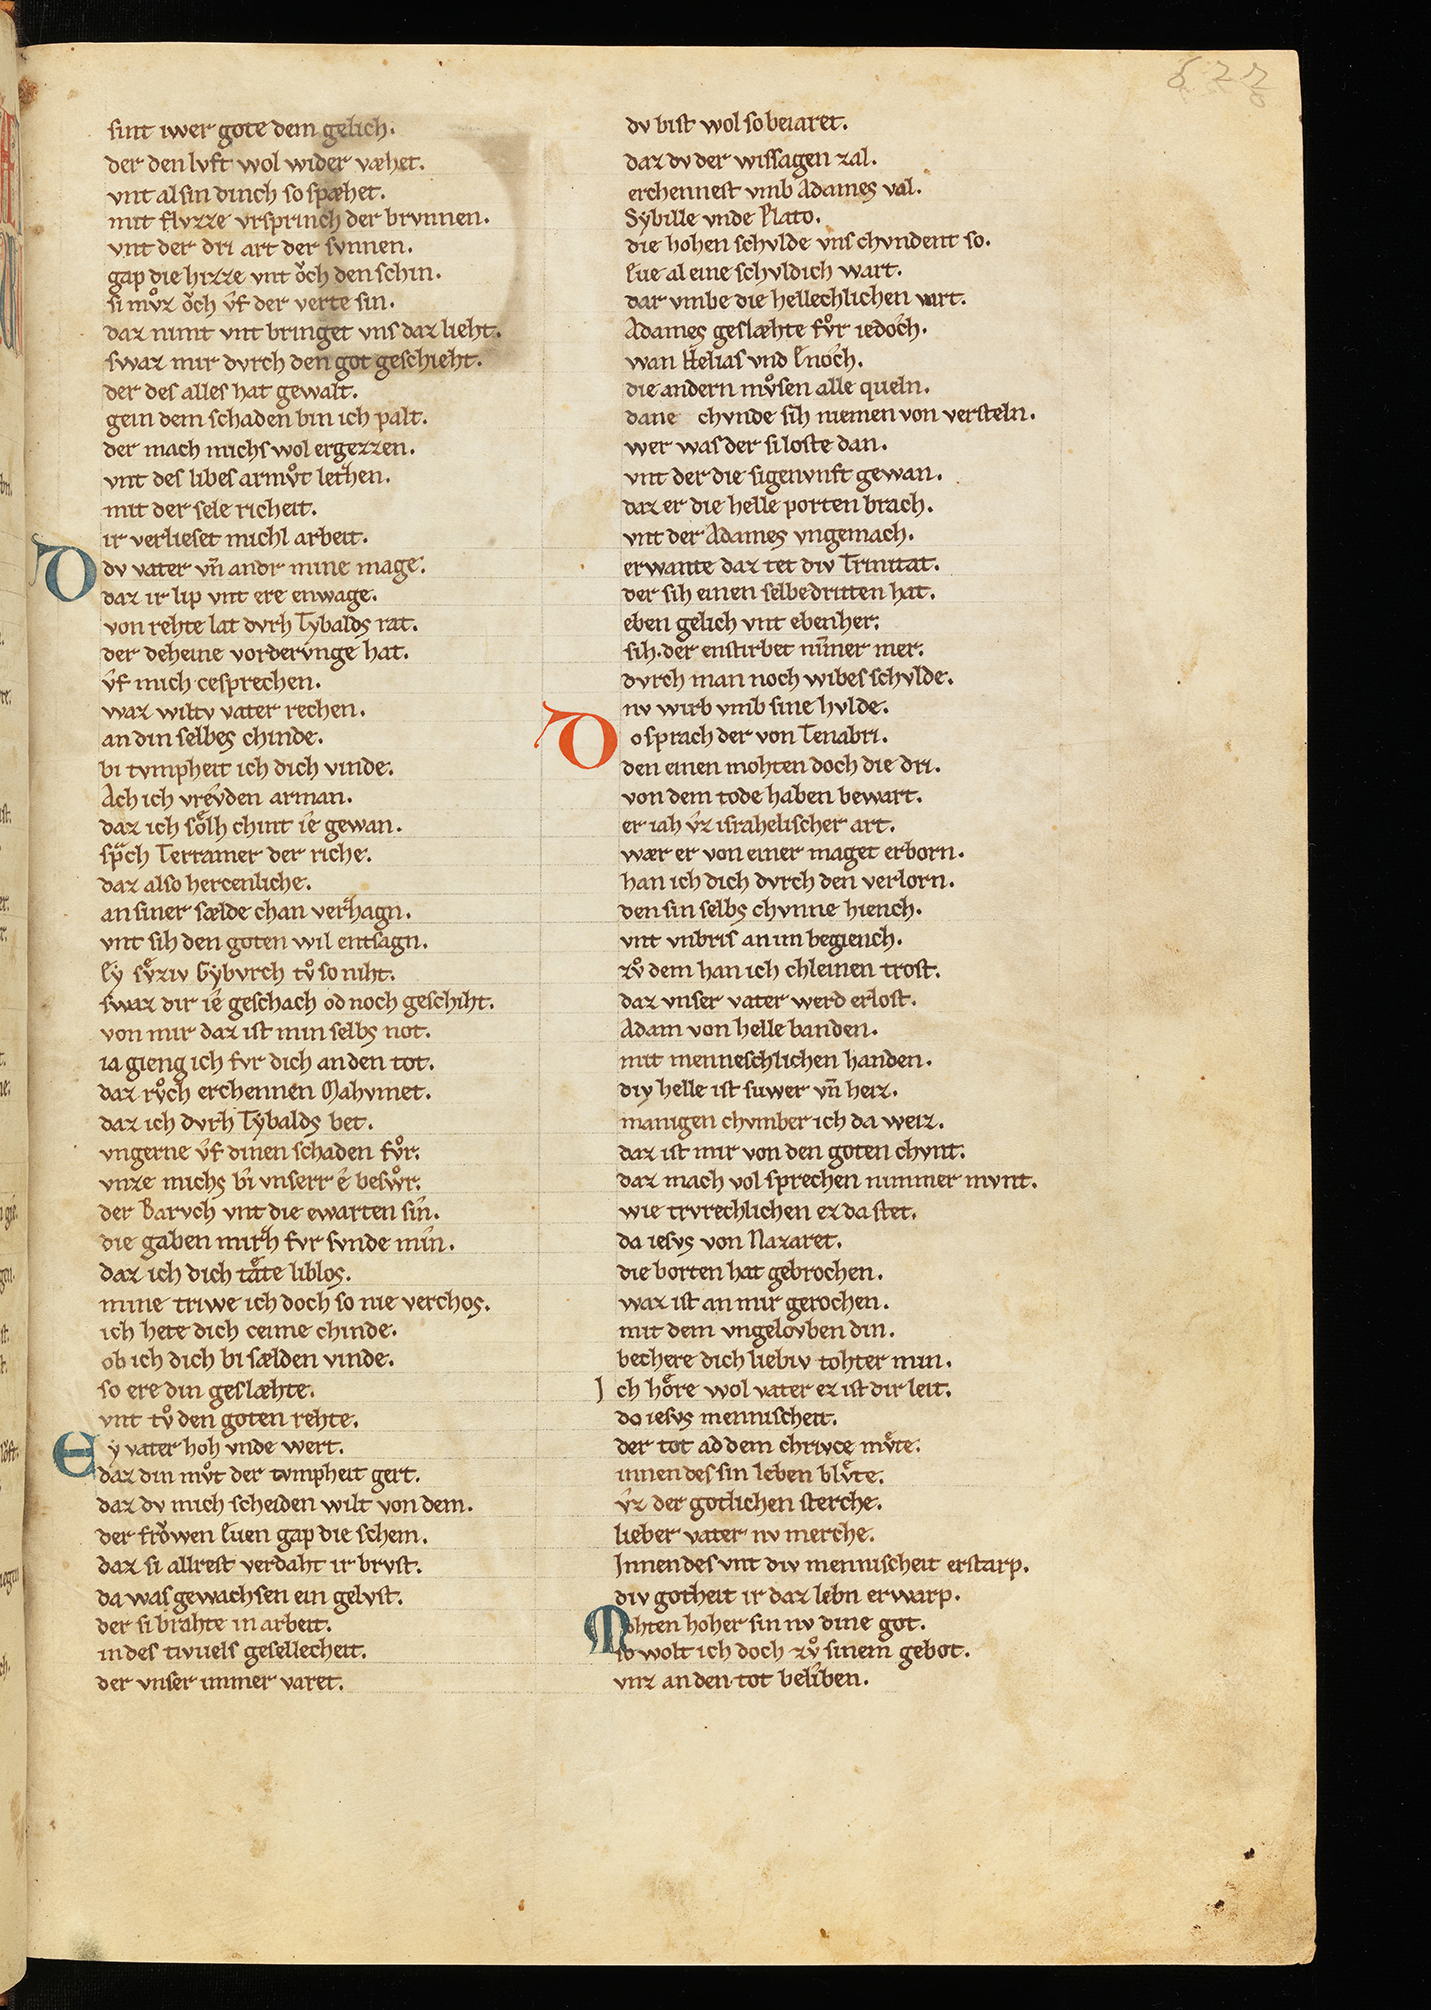 622
sint iwer gote dem gelich.
der den lvft wol wider væhet.
vnt al sin dinch so spæhet.
mit flvzze vrsprinch der brvnnen.
vnt der dri art der svnnen.
gap die hizze vnt oͮch den schin.
si mvͦz oͮch vf der verte sin.
daz nimt vnt bringet vns daz lieht.
swaz mir dvrch den got geschieht.
der des alles hat gewalt.
gein dem schaden bin ich palt.
der mach michs wol ergezzen.
vnt des libes armvͦt letzhen.
mit der sele richeit.
ir verlieset michl arbeit.
Dv vater vn̄ andr mine mage.
daz ir lip vnt ere enwage.
von rehte lat dvrh Tybalds rat.
der deheine vorderv́nge hat.
v́f mich cesprechen.
waz wiltv vater rechen.
an din selbes chinde.
bi tvmpheit ich dich vinde.
Ach ich vrev́den arman.
daz ich soͤlh chint íe gewan.
spͣch Terramer der riche.
daz also hercenliche.
an siner sælde chan verzhagn.
vnt sih den goten wil entsagn.
Ey sv́ͤziv Gybvrch tvͦ so niht.
swaz dir íe geschach od noch geschiht.
von mir daz ist min selbs not.
ia gieng ich fvr dich an den tot.
daz rvͦch erchennen Mahvmet.
daz ich dvrh Tybalds bet.
vngerne v́f dinen schaden fvͦr.
vnze michs bi vnserr é beswͦr.
der Barvch vnt die ewarten sin.
die gaben mirzh fvr svnde min.
daz ich dich tæͤte liblos.
mine triwe ich doch so nie verchos.
ich hete dich ceime chinde.
ob ich dich bi sælden vinde.
so ere din geslæhte.
vnt tvͦ den goten rehte.
Ey vater hoh vnde wert.
daz din mvͦt der tvmpheit gert.
daz dv mich scheiden wilt von dem.
der froͮwen Euen gap die schem.
daz si allrest verdaht ir brvst.
da was gewachsen ein gelvst.
der si brahte in arbeit.
in des tivuels gesellecheit.
der vnser immer varet.
dv bist wol so beiaret.
daz dv der wissagen zal.
erchennest vmb Adames val.
Sybille vnde Plato.
die hohen schvlde vns chvndent so.
Eue al eine schvldich wart.
dar vmbe die hellechlichen vart.
Adames geslæhte fvͦr iedoch.
wan Helias vnd Enoch.
die andern mvͦsen alle queln.
dane chvnde sih niemen von versteln.
wer was der si loste dan.
vnt der die sigenvnft gewan.
daz er die helle porten brach.
vnt der Adames vngemach.
erwante daz tet div Trinitat.
der sih einen selbedritten hat.
eben gelich vnt ebenher.
sih.der enstirbet nim̄er mer.
dvrch man noch wibes schvlde.
nv wirb vmb sine hvlde.
Do sprach der von Tenabri.
den einen mohten doch die dri.
von dem tode haben bewart.
er iah v́z israhelischer art.
wær er von einer maget erborn.
han ich dich dvrch den verlorn.
den sin selbs chvnne hiench.
vnt vnbris an im begiench.
zvͦ dem han ich chleinen trost.
daz vnser vater werd erlost.
Adam von helle banden.
mit menneschlichen handen.
div helle ist suwer vn̄ heiz.
manigen chvmber ich da weiz.
daz ist mir von den goten chvnt.
daz mach vol sprechen nimmer mvnt.
wie trvrechlichen ez da stet.
da iesvs von Nazaret.
die borten hat gebrochen.
waz ist an mir gerochen.
mit dem vngelovben din.
bechere dich liebiv tohter min.
Ich hoͤre wol vater ez ist dir leit.
do iesvs mennischeit.
der tot ad dem chrivce mvͤte.
innen des sin leben blvͤte.
v́z der gotlichen sterche.
lieber vater nv merche.
Innen des vnt div mennischeit erstarp.
div gotheit ir daz lebn erwarp.
Mohten hoher sin nv dine got.
so wolt ich doch zvͦ sinem gebot.
vnz an den tot beliben.